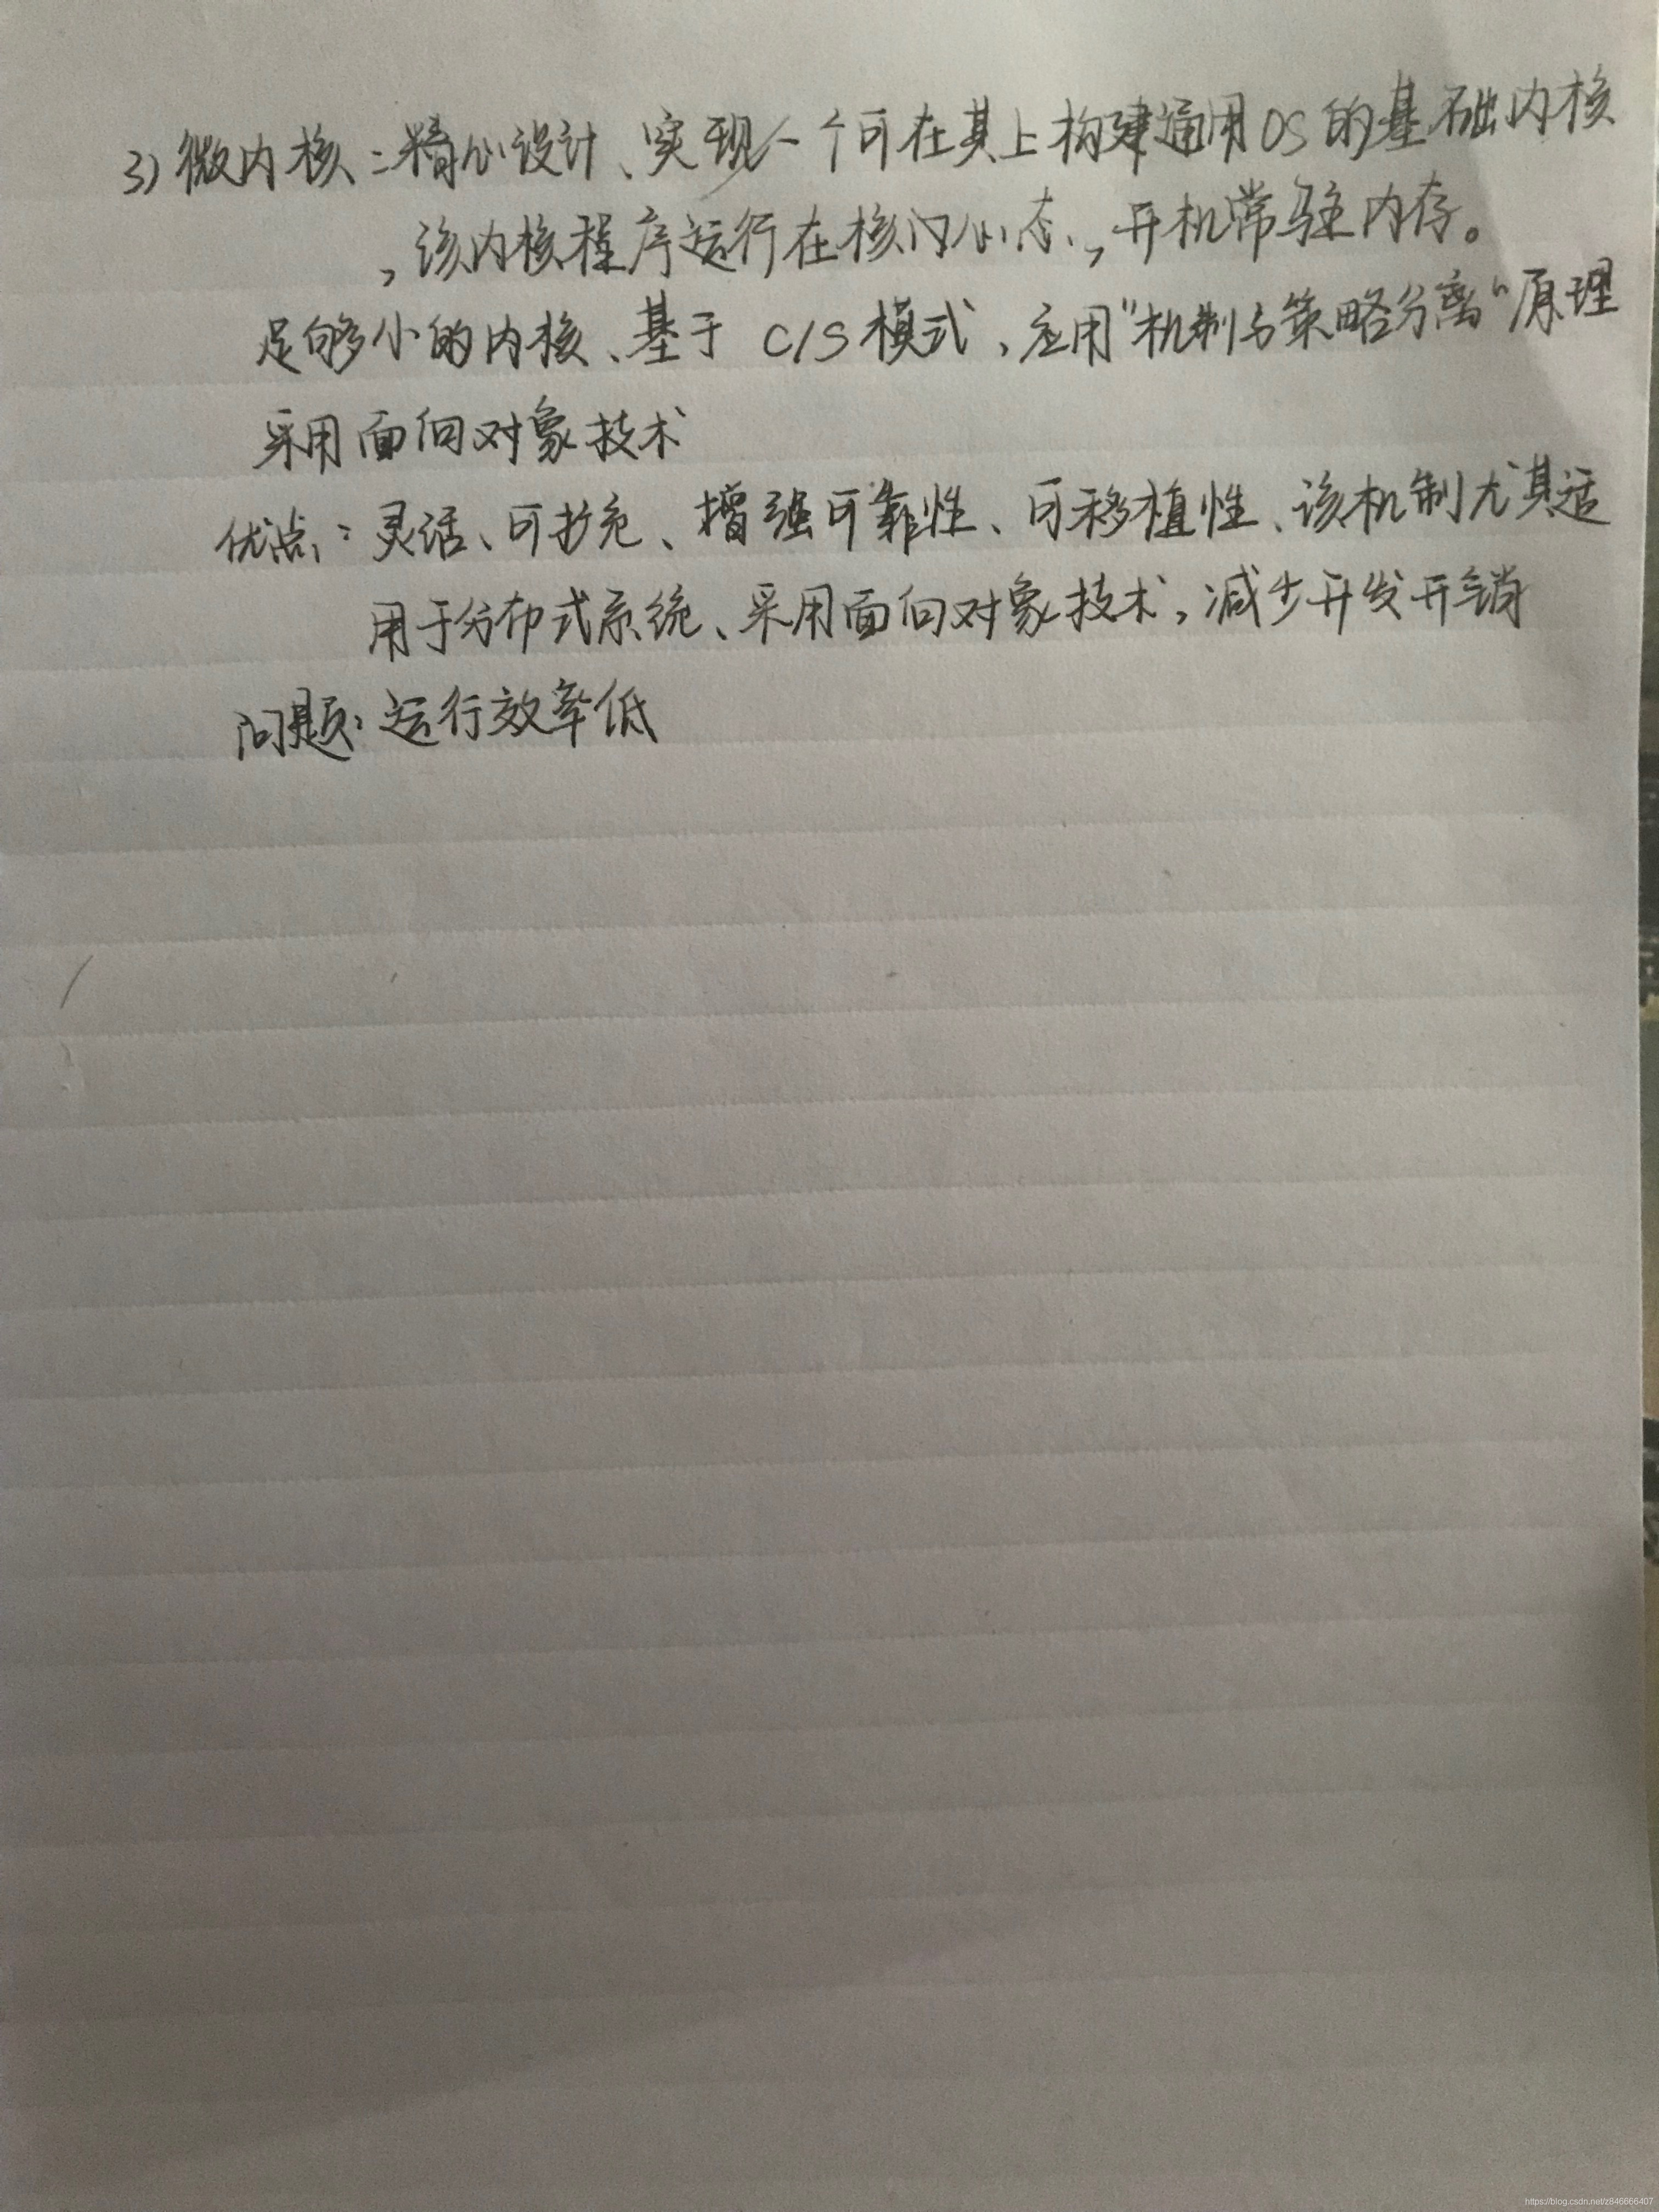 3) 微内核：精心设计、实现一个可在其上构建通用OS的基础内核
，该内核程序运行在核心态，开机常驻内存。
足够小的内核、基于 C/S 模式、应用"机制与策略分离"原理
采用面向对象技术
优点：灵活、可扩充、增强可靠性、可移植性、该机制尤其适
用于分布式系统、采用面向对象技术，减少开发开销
问题：运行效率低
https://blog.csdn.net/z846666407